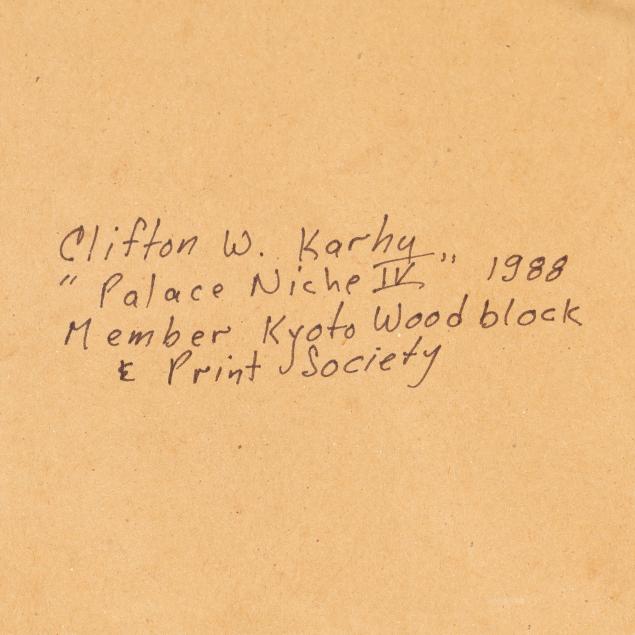 Clifton W. Karhy
"Palace Niche IV" 1988
Member Kyoto Woodblock
& Print Society